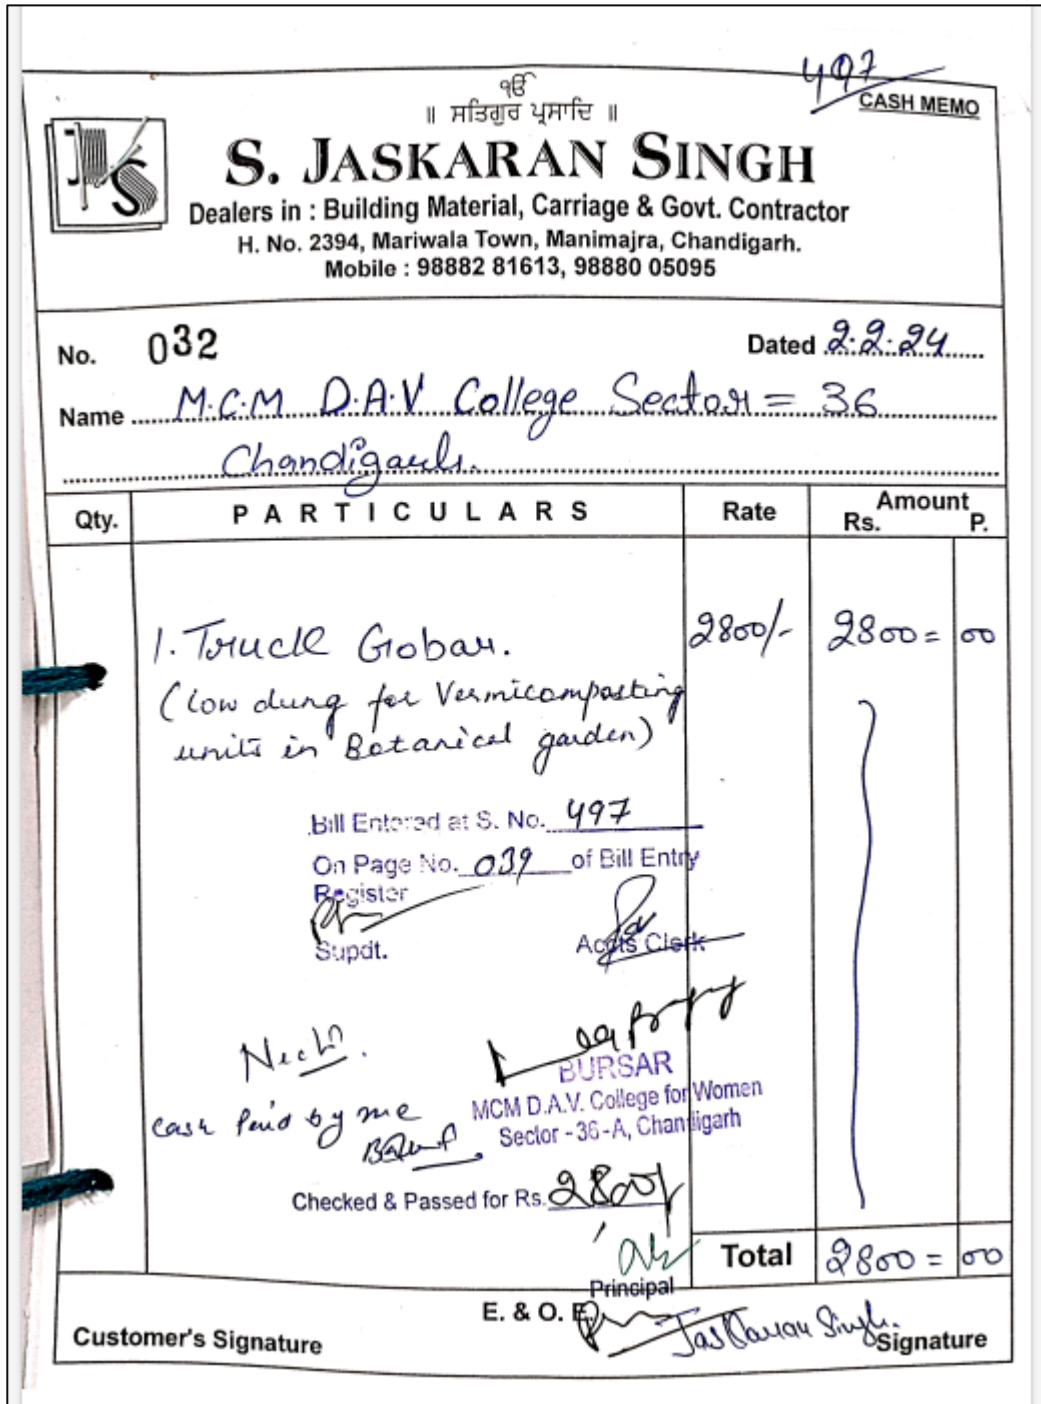 497
CASH MEMO
ੴ
॥ ਸਤਿਗੁਰ ਪ੍ਰਸਾਦਿ ॥
JS
S. JASKARAN SINGH
Dealers in : Building Material, Carriage & Govt. Contractor
H. No. 2394, Mariwala Town, Manimajra, Chandigarh.
Mobile : 98882 81613, 98880 05095
No. 032 Dated 2.2.24
Name M.C.M D.A.V College Sector = 36
Chandigarh.
Qty. PARTICULARS Rate Amount
Rs. P.
1. Truck Gobar. 2800/- 2800 = 00
(Cow dung for Vermicomposting
units in Botanical garden)
Bill Entered at S. No. 497
On Page No. 039 of Bill Entry
Register
Supdt. Accts Clerk
BURSAR
MCM D.A.V. College for Women
Sector - 36-A, Chandigarh
cash Paid by me
Checked & Passed for Rs. 2800/
Principal
Total 2800 = 00
E. & O. E.
Jaskaran Singh.
Customer's Signature Signature